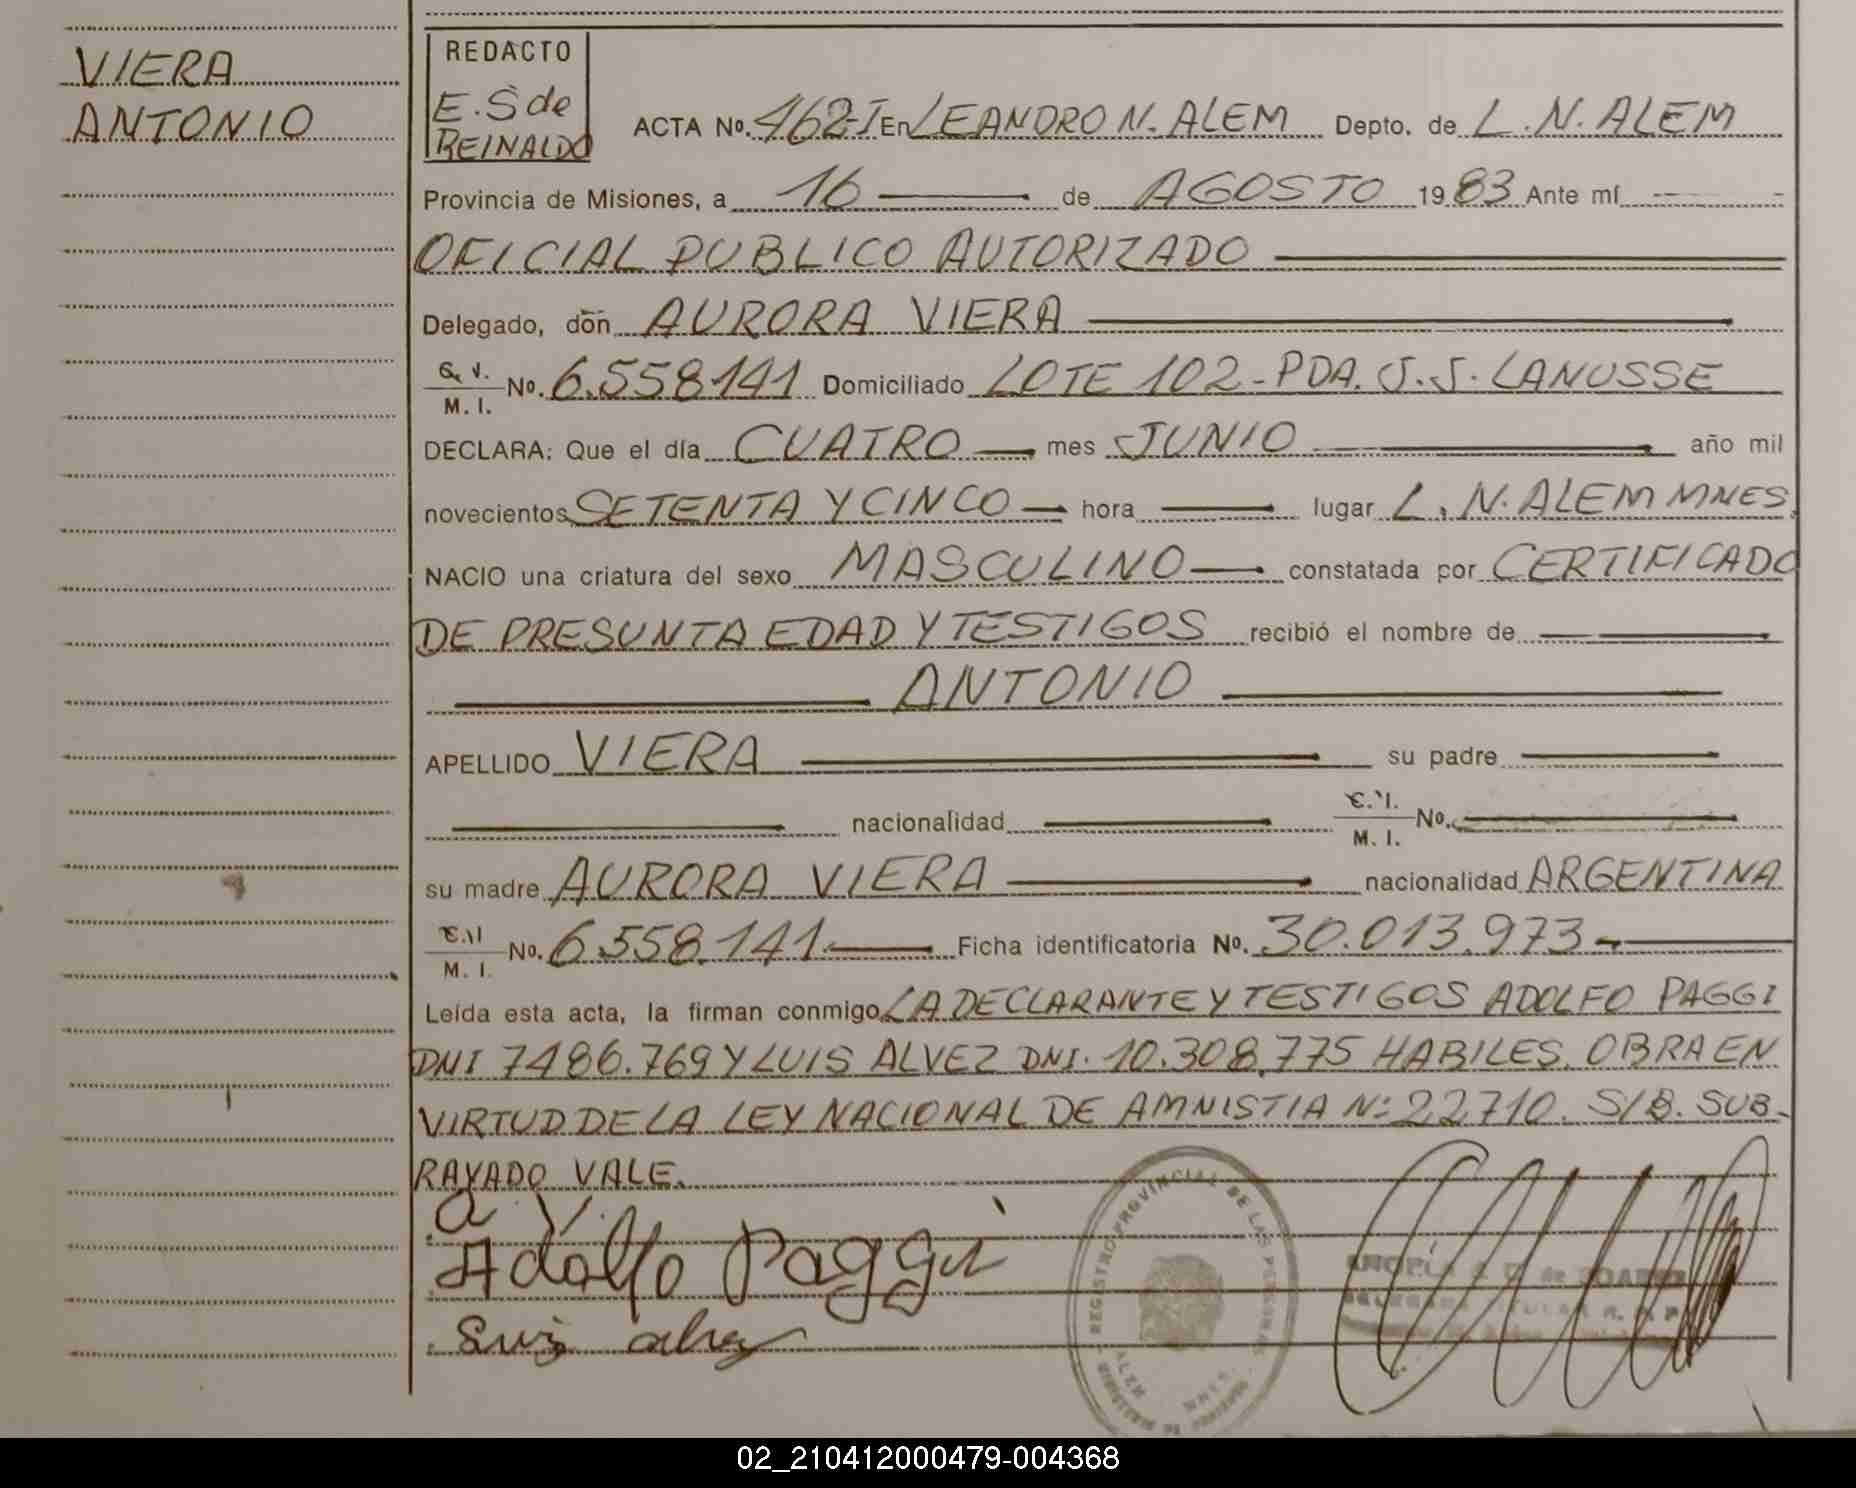 VIERA
ANTONIO
REDACTO
E. S de
REINALDO
ACTA No. 462-I En LEANDRO N. ALEM Depto. de L. N. ALEM
Provincia de Misiones, a 16 de AGOSTO 1983 Ante mí
OFICIAL PUBLICO AUTORIZADO
Delegado, don AURORA VIERA
M. I. No. 6.558141 Domiciliado LOTE 102 - PDA. J. J. LANUSSE
DECLARA: Que el día CUATRO mes JUNIO año mil
novecientos SETENTA Y CINCO hora lugar L. N. ALEM MNES.
NACIO una criatura del sexo MASCULINO constatada por CERTIFICADO
DE PRESUNTA EDAD Y TESTIGOS recibió el nombre de
ANTONIO
APELLIDO VIERA su padre
nacionalidad M. I. No.
su madre AURORA VIERA nacionalidad ARGENTINA
M. I. No. 6.558.141. Ficha identificatoria No. 30.013.973-
Leída esta acta, la firman conmigo LA DECLARANTE Y TESTIGOS ADOLFO PAGGI
DNI 7486.769 Y LUIS ALVEZ DNI. 10.308.775 HABILES. OBRA EN
VIRTUD DE LA LEY NACIONAL DE AMNISTIA Nº 22710. S/B. SUB-
RAYADO VALE.
a V.
Adolfo Paggi
REGISTRO PROVINCIAL DE LAS PERSONAS
ALEM
MNES.
02_210412000479-004368